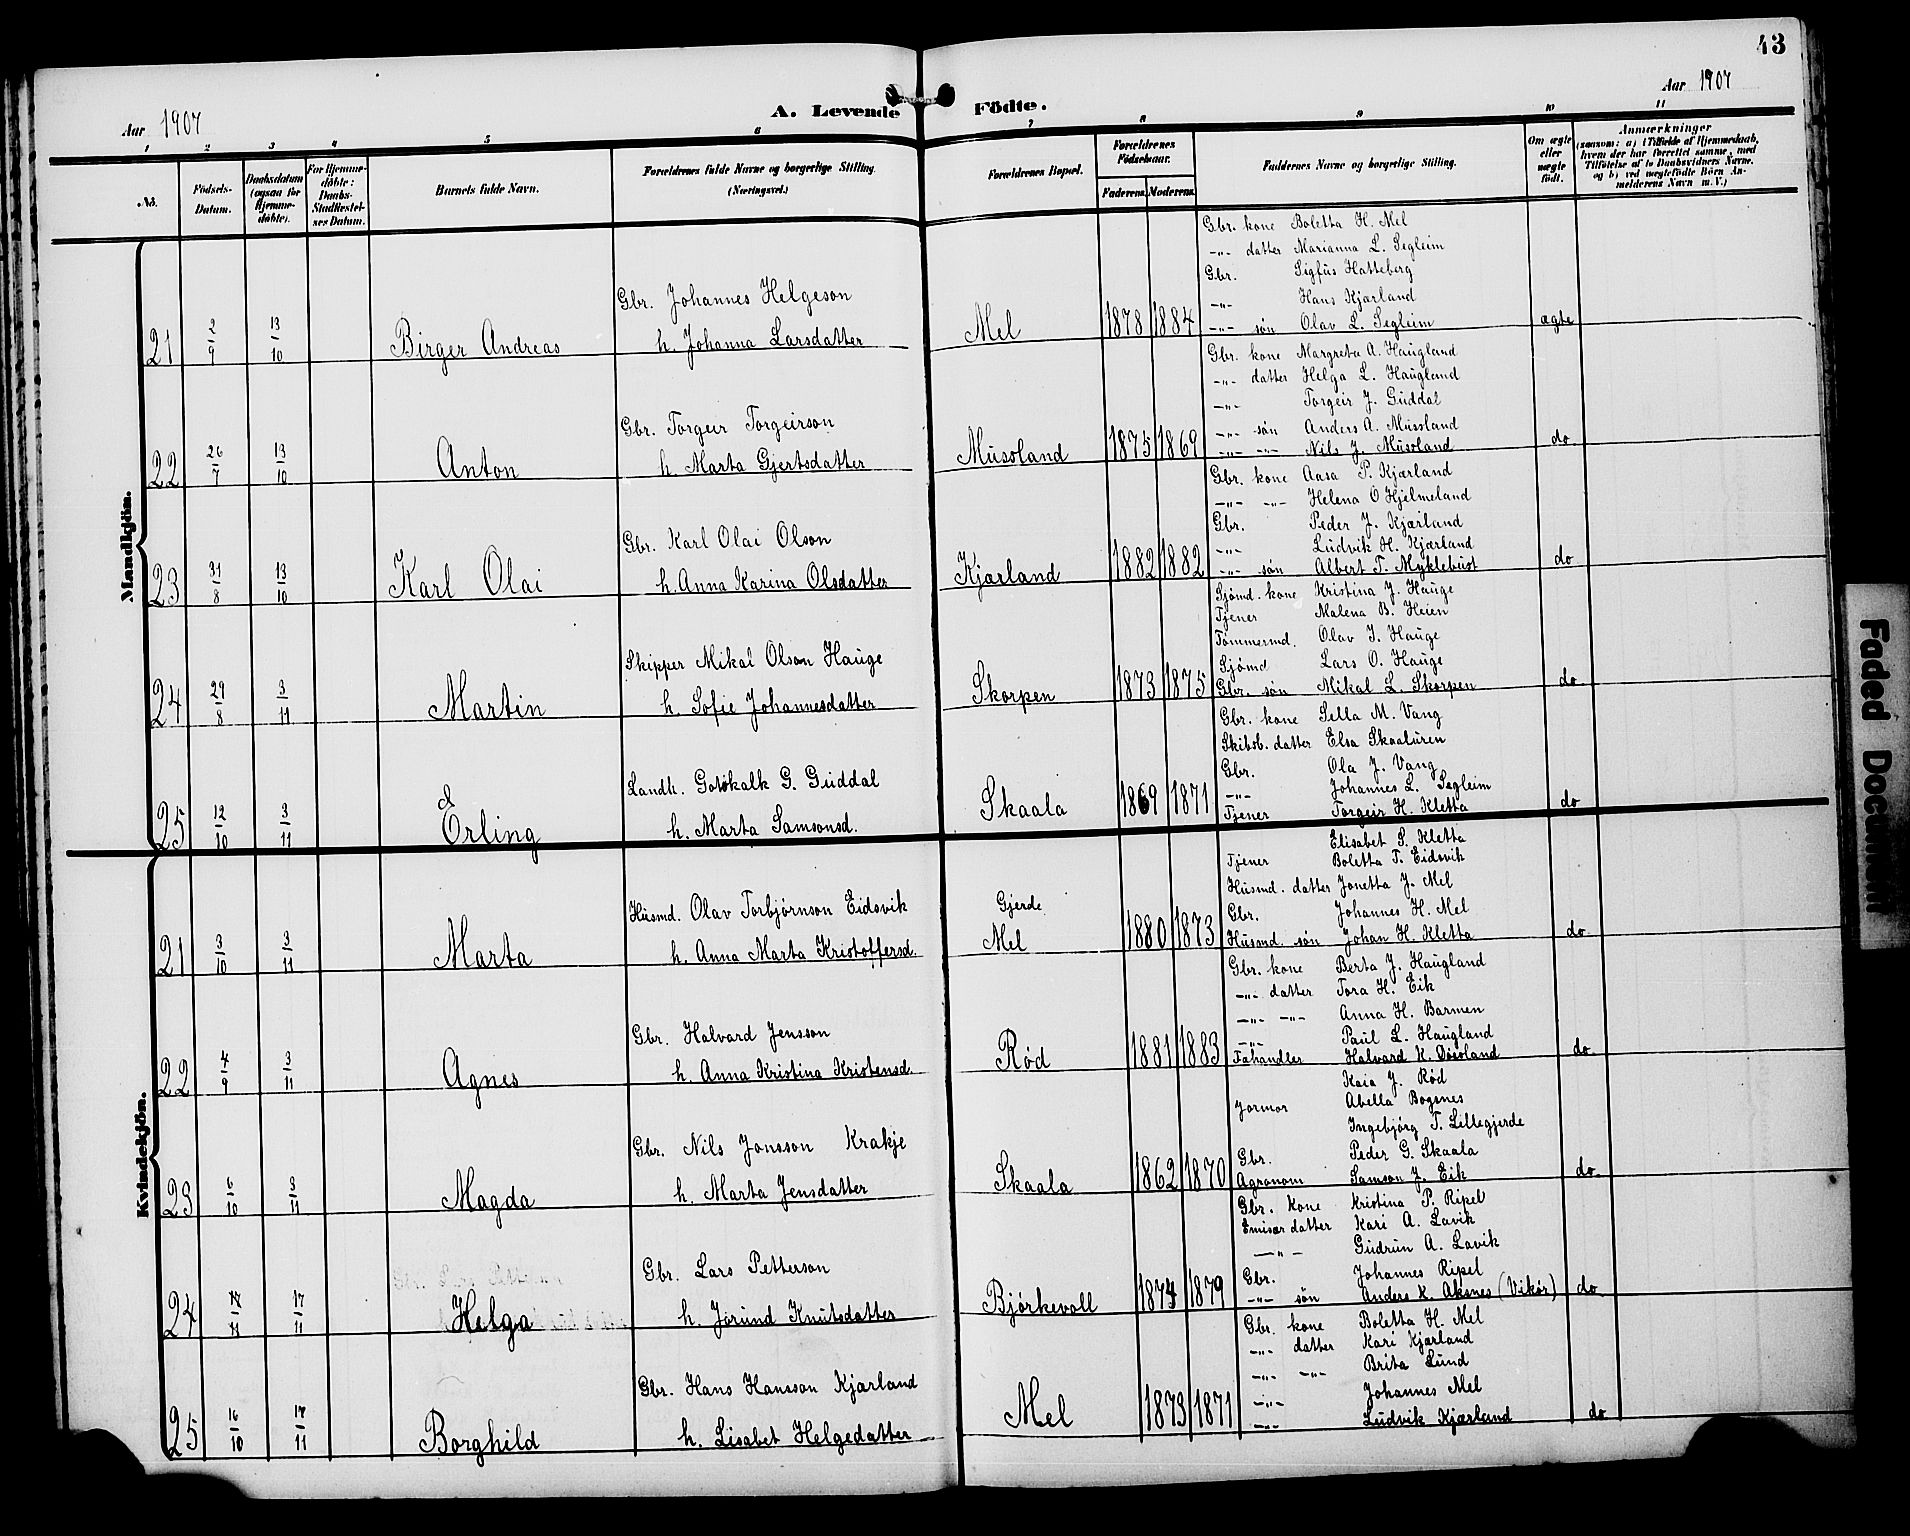 43
Aar 1907
A. Levende Födte.
Aar 1907
1 2 3 4 5 6 7 8 9 10 11
No.
Födsels-Datum.
Daabsdatum (ogsaa for Hjemme-döbte).
For Hjemme-döbte: Daabs-Stadfæstel-ses Datum.
Barnets fulde Navn.
Forældrenes fulde Navne og borgerlige Stilling. (Næringsvei.)
Forældrenes Bopæl.
Forældrenes Födselsaar.
Faderens. Moderens.
Faddernes Navne og borgerlige Stilling.
Om ægte eller uægte födt.
Anmærkninger
(saasom: a) i Tilfælde af Hjemmedaab, hvem der har forrettet samme, med Tilföielse af to Daabsvidners Navne. og b) ved uægtefödte Börn Anmelderens Navn m. V.)
Mandkjön.
21 2/9 13/10 Birger Andreas
Gbr. Johannes Helgeson
h. Johanna Larsdatter
Mel 1878 1884
Gbr. kone Boletta H. Mel
-"- datter Marianna L. Segleim
Gbr. Sigfus Hatteberg
-"- Hans Kjærland
-"- søn Olav L. Segleim
ægte
22 26/7 13/10 Anton
Gbr. Torgeir Torgeirson
h. Marta Gjertsdatter
Mussland 1875 1869
Gbr. kone Margreta A. Haugland
-"- datter Helga L. Haugland
-"- Torgeir J. Guddal
-"- søn Anders A. Mussland
-"- -"- Nils J. Mussland
do
23 31/8 13/10 Karl Olai
Gbr. Karl Olai Olson
h. Anna Karina Olsdatter
Kjærland 1882 1882
Gbr. kone Aasa P. Kjærland
-"- -"- Helena O Hjelmeland
Gbr. Peder J. Kjærland
-"- Ludvik H. Kjærland
-"- søn Albert T. Myklebust
do
24 29/8 3/11 Martin
Skipper Mikal Olson Hauge
h. Sofie Johannesdatter
Skorpen 1873 1875
Sjømd. kone Kristina J. Hauge
Tjener Malena B. Heien
Tømmermd. Olav J. Hauge
Sjømd Lars O. Hauge
Gbr. søn Mikal L. Skorpen
do
25 12/10 3/11 Erling
Landh. Gotskalk G. Guddal
h. Marta Samsonsd.
Skaala 1869 1871
Gbr. kone Sella M. Vang
Skibsb. datter Elsa Skaaluren
Gbr. Ola J. Vang
-"- Johannes L. Segleim
Tjener Torgeir H. Kletta
do
Kvindekjön.
21 3/10 3/11 Marta
Husmd. Olav Torbjørnson Eidsvik
h. Anna Marta Kristoffersd.
Gjerde
Mel 1880 1873
Elisabet S. Kletta
Tjener Boletta T. Eidsvik
Husmd. datter Jonetta J. Mel
Gbr. Johannes H. Mel
Husmd. søn Johan H. Kletta
do
22 4/9 3/11 Agnes
Gbr. Halvard Jensson
h. Anna Kristina Kristensd.
Rød 1881 1883
Gbr. kone Berta J. Haugland
-"- datter Tora H. Eik
-"- -"- Anna H. Barmen
-"- Paul L. Haugland
Fæhandler Halvard K.
do
23 6/10 3/11 Magda
Gbr. Nils Jonsson Krakje
h. Marta Jensdatter
Skaala 1862 1870
Kaia J. Rød
Jormor Abella Bogsnes
Ingebjørg T. Lillegjerde
Gbr. Peder G. Skaala
Agronom Samson J. Eik
do
24 17/11 Helga
Gbr. Lars Petterson
h. Jorund Knutsdatter
Bjørkevoll 1874 1879
Gbr. kone Kristina P. Ripel
Emisær datter Kari A. Lavik
-"- Gudrun A. Lavik
Gbr. Johannes Ripel
-"- søn Anders K. Aksnes (Vikør)
do
25 16/10 17/11 Borghild
Gbr. Hans Hansson Kjærland
h. Lisabet Helgedatter
Mel 1873 1871
Gbr. kone Boletta H. Mel
-"- datter Kari Kjærland
-"- -"- Brita Lund
-"- Johannes Mel
-"- Ludvik Kjærland
do
Faded Document